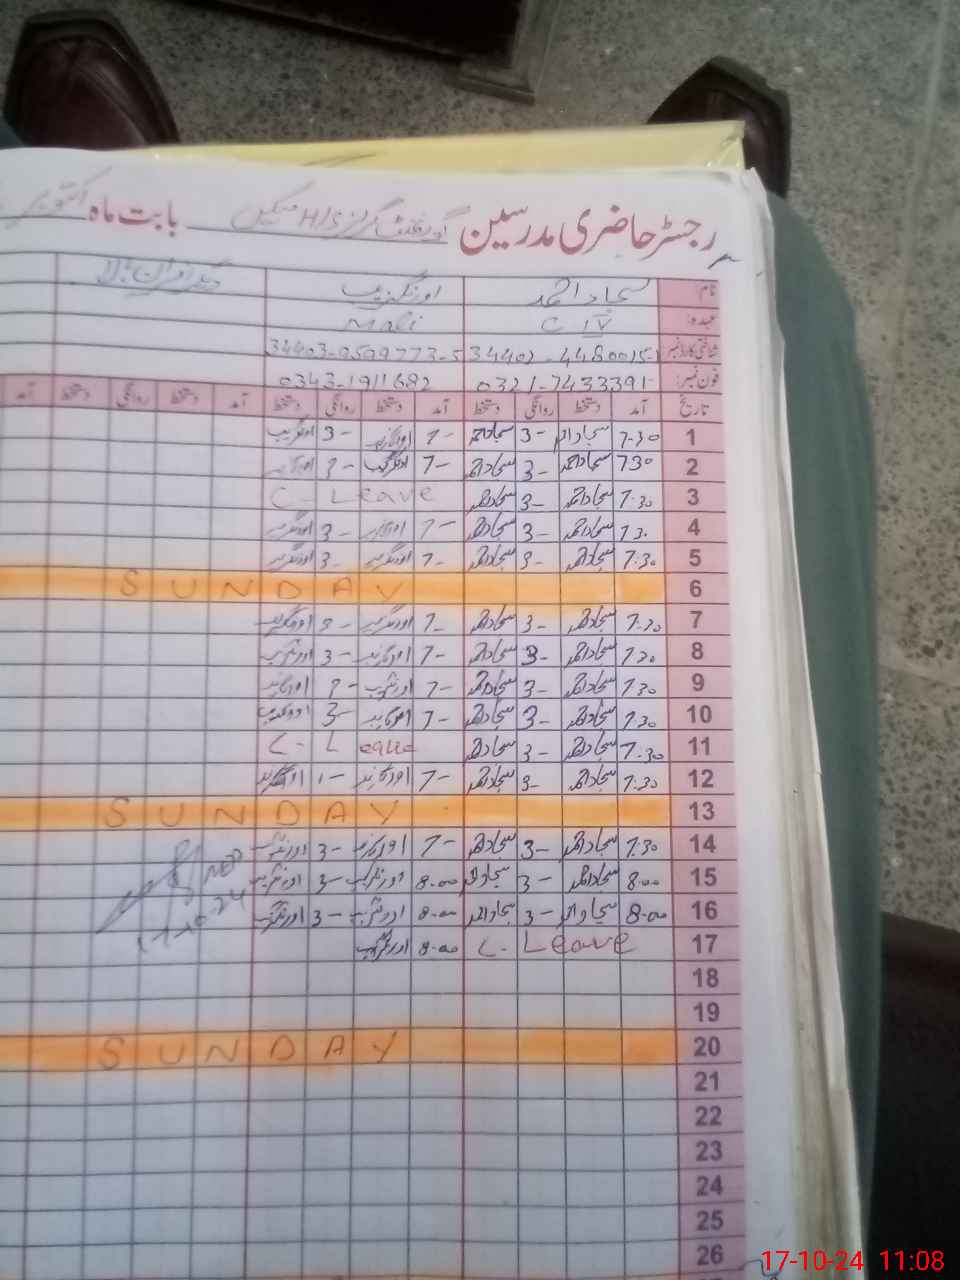 رجسٹر حاضری مدرسین گورنمنٹ گرلز H/S بابت ماہ اکتوبر
نام: سجاد احمد اورنگزیب
عہدہ: C IV Mali
شناختی کارڈ نمبر 34402-4480015-1 34403-9599773-5
فون نمبر: 0321-7433391 0343-1911682
تاریخ آمد دستخط روانگی دستخط آمد دستخط روانگی دستخط آمد دستخط روانگی دستخط آمد
1 7.30 سجاد احمد 3- سجاد احمد 7- اورنگزیب 3- اورنگزیب
2 7 30 سجاد احمد 3- سجاد احمد 7- اورنگزیب 3- اورنگزیب
3 7.30 سجاد احمد 3- سجاد احمد C-Leave
4 7 30 سجاد احمد 3- سجاد احمد 7- اورنگزیب 3- اورنگزیب
5 7.30 سجاد احمد 3- سجاد احمد 7- اورنگزیب 3- اورنگزیب
6 SUNDAY
7 7.30 سجاد احمد 3- سجاد احمد 7- اورنگزیب 3- اورنگزیب
8 7.30 سجاد احمد 3- سجاد احمد 7- اورنگزیب 3- اورنگزیب
9 7.30 سجاد احمد 3- سجاد احمد 7- اورنگزیب 3- اورنگزیب
10 7.30 سجاد احمد 3- سجاد احمد 7- اورنگزیب 3- اورنگزیب
11 7.30 سجاد احمد 3- سجاد احمد C-Leave
12 7.30 سجاد احمد 3- سجاد احمد 7- اورنگزیب 1- اورنگزیب
13 SUNDAY
14 7.30 سجاد احمد 3- سجاد احمد 7- اورنگزیب 3- اورنگزیب
15 8.00 سجاد احمد 3- سجاد احمد 8.00 اورنگزیب 3- اورنگزیب
16 8.00 سجاد احمد 3- سجاد احمد 8.00 اورنگزیب 3- اورنگزیب
17-10-24
17 C-Leave 8.00 اورنگزیب
18
19
20 SUNDAY
21
22
23
24
25
26
17-10-24 11:08